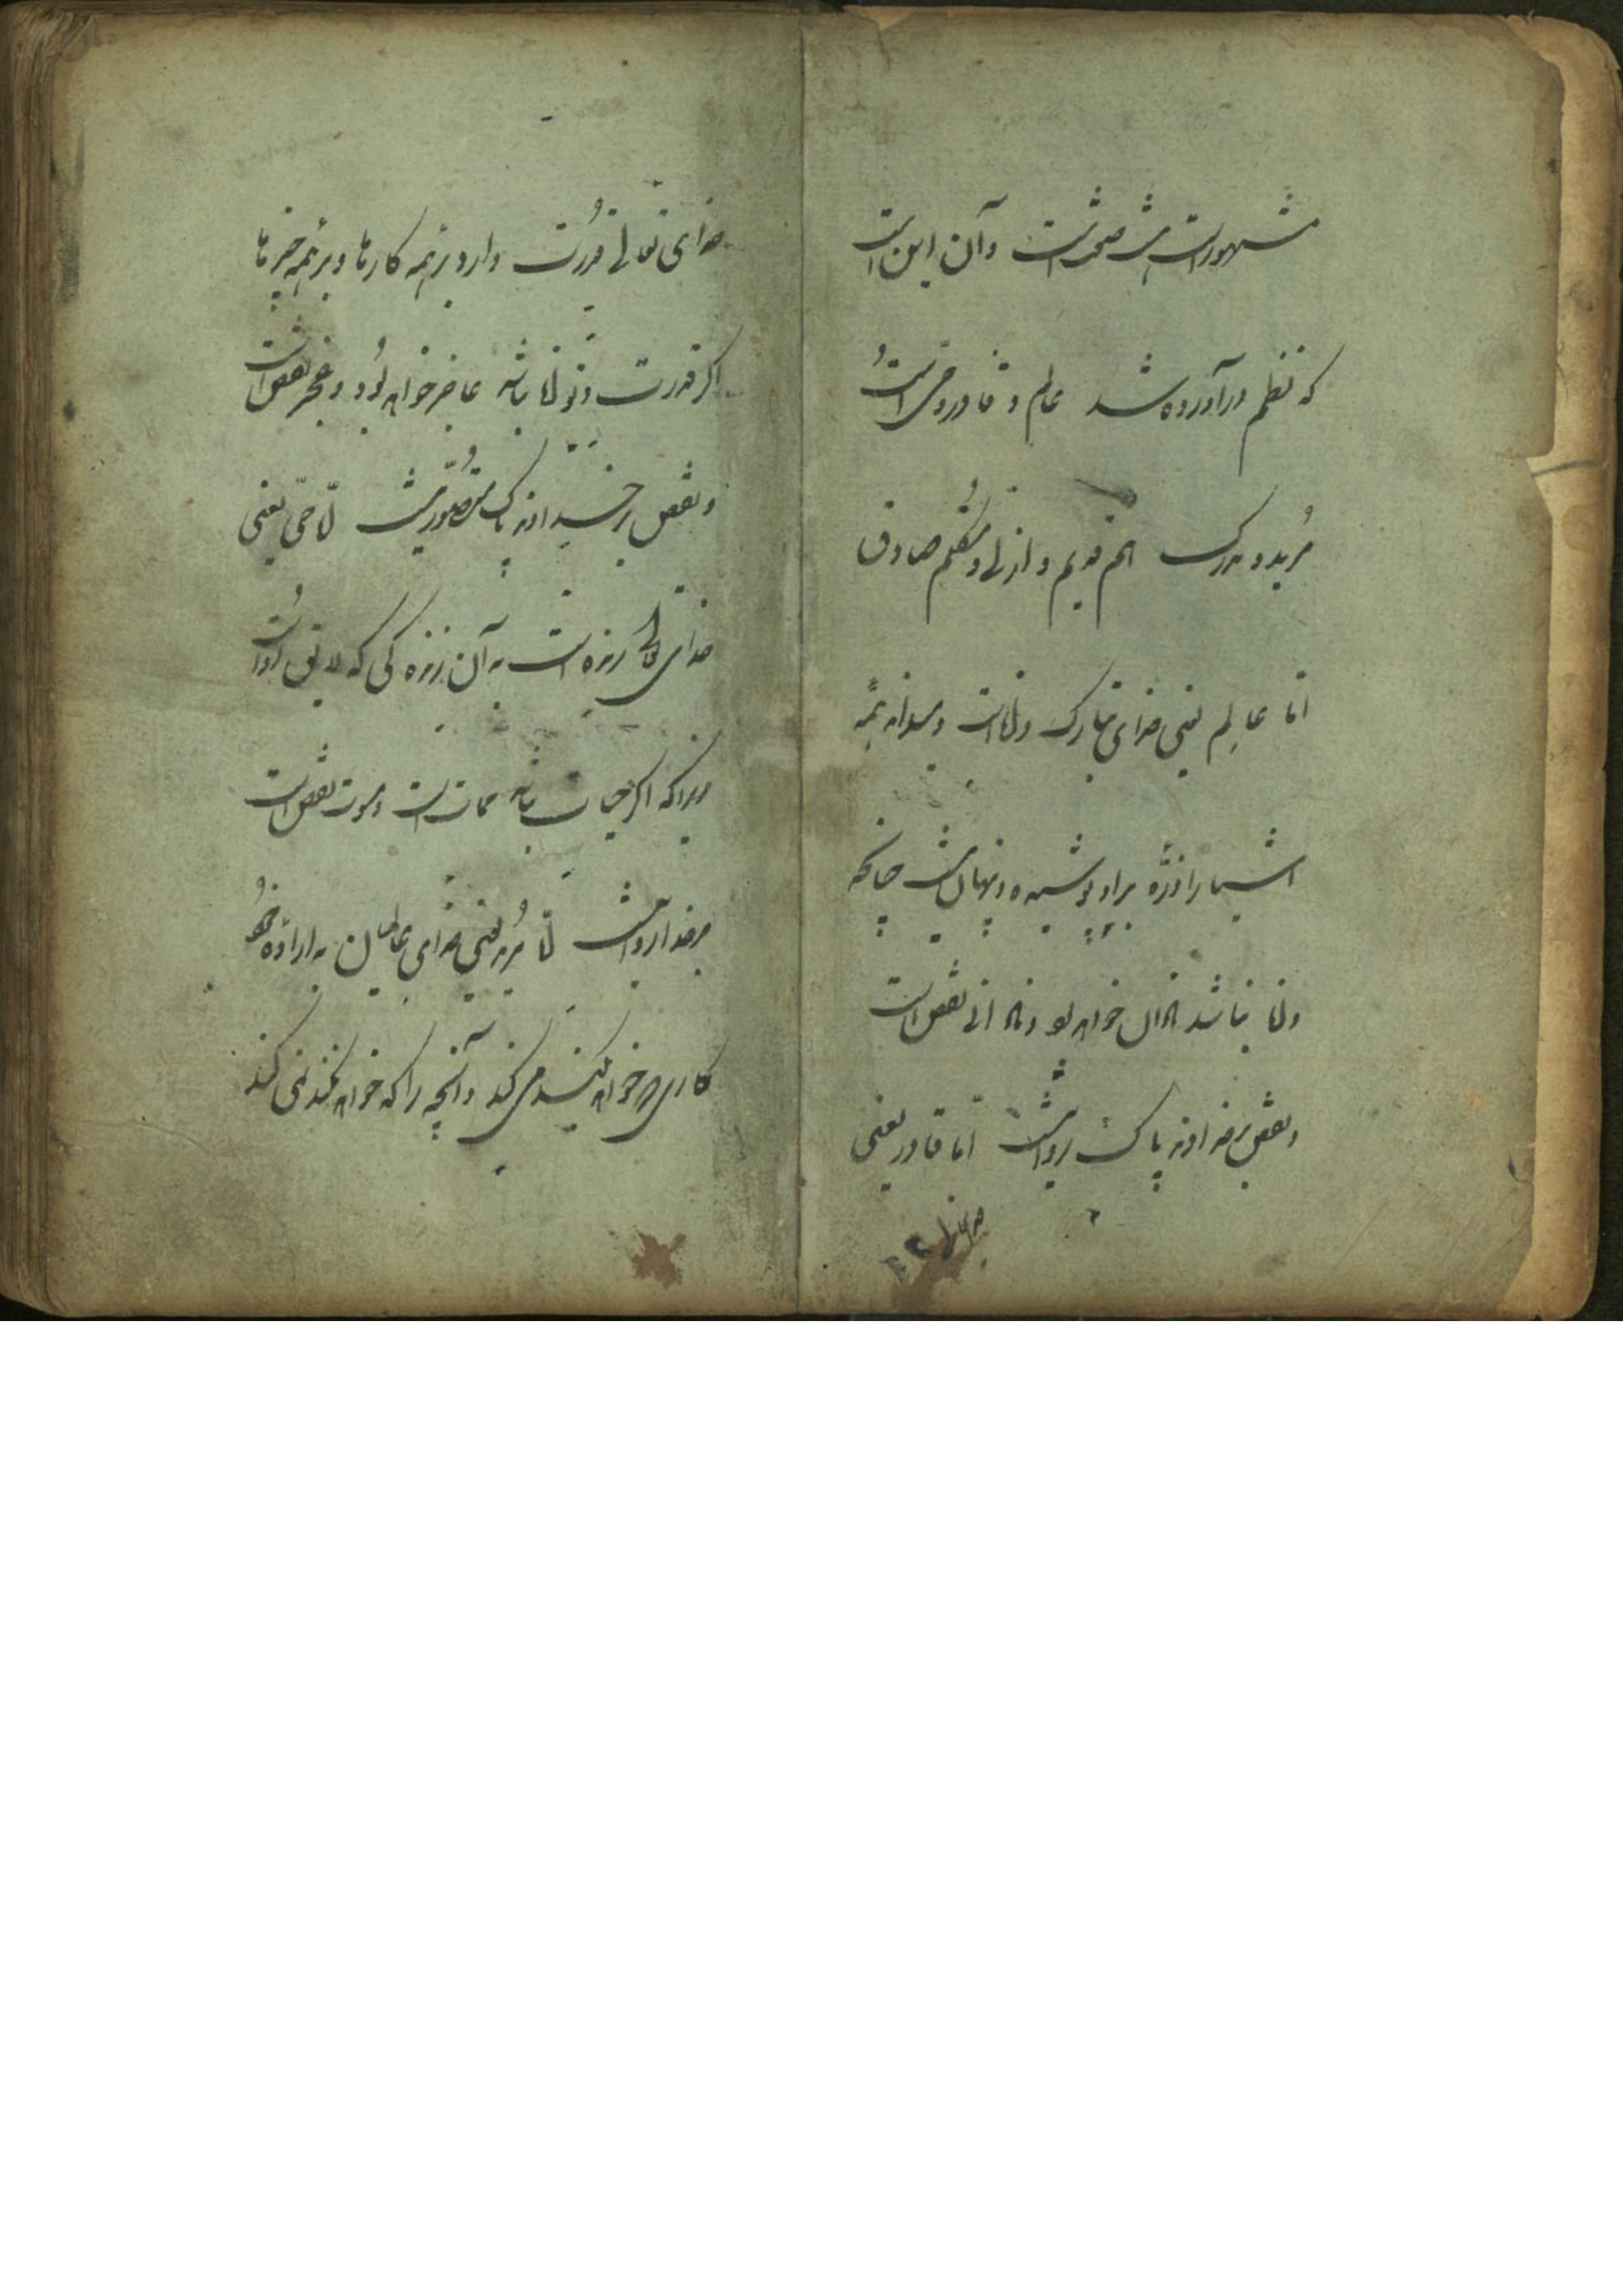 مشهور است هشت صفت است و آن این است
که نظم در آورده شد عالم و قادر و حی است
مُرید و مدرک هم قدیم و ازلی و متکلم صادق
امّا عالِم یعنی خدای تبارک داناست و میداند همه
اشیا را و ذرّه بر او پوشیده و پنهان نیست چنانچه
دانا نباشد نادان خواهد بود و نادانی نقص است
و نقص بر خداوند پاک روا نیست امّا قادر یعنی
خدای تعالی
خدای تعالی قدُرت دارد بر همه کارها و بر همه چیزها
اکر قدرت و توانا نباشد عاجز خواهد بُود و عجز نقص است
و نقص بر خداوند پاک متُصّور نیست امّا حیّ یعنی
خدای تعالی زنده است به آن زنده کی که لایق اوُست
زیراکه اکر حیات نباشد ممات است و موت نقص است
بر خدا روا نیست امّا مُرید یعنی خدای عالمیان به اراده خوُد
کاری که خواهد بکند می کند و آنچه را که خواهد نکند نمی کند